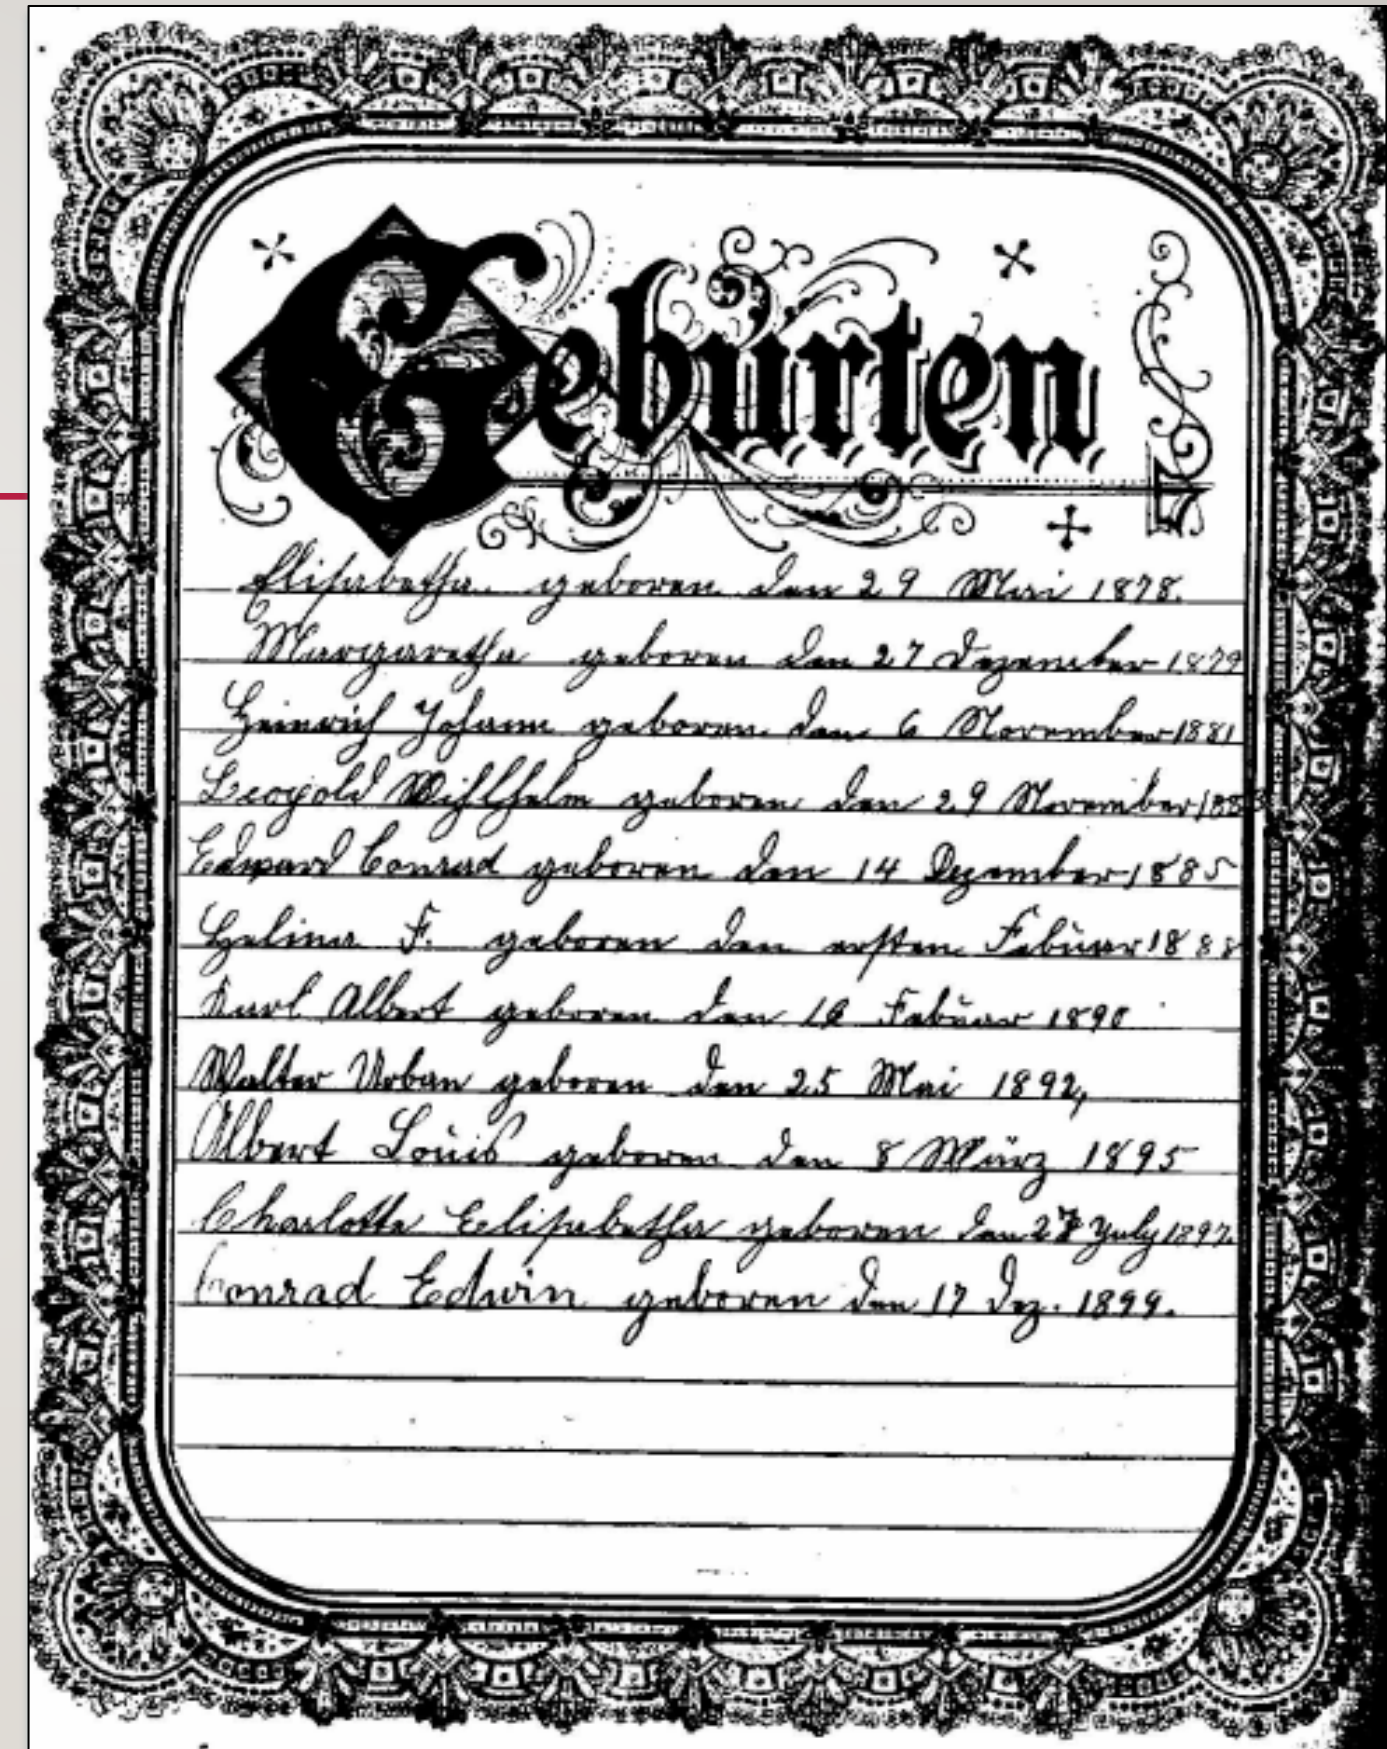 Geburten
Elisabetha geboren den 29 Mai 1878.
Margaretha geboren den 27 Dezember 1879
Heinrich Johann geboren den 6 November 1881
Leopold Wihlhelm geboren den 29 November
Edward Conrad geboren den 14 Dezember 1885
Helina F. geboren den ersten Febüar 1888
Karl Albert geboren den Febüar 1890
Walter Urban geboren den 25 Mai 1892,
Albert Louis geboren den 8 März 1895
Charlotte Elisabetha geboren den July 1897.
Conrad Edwin geboren den 17 Dez. 1899.